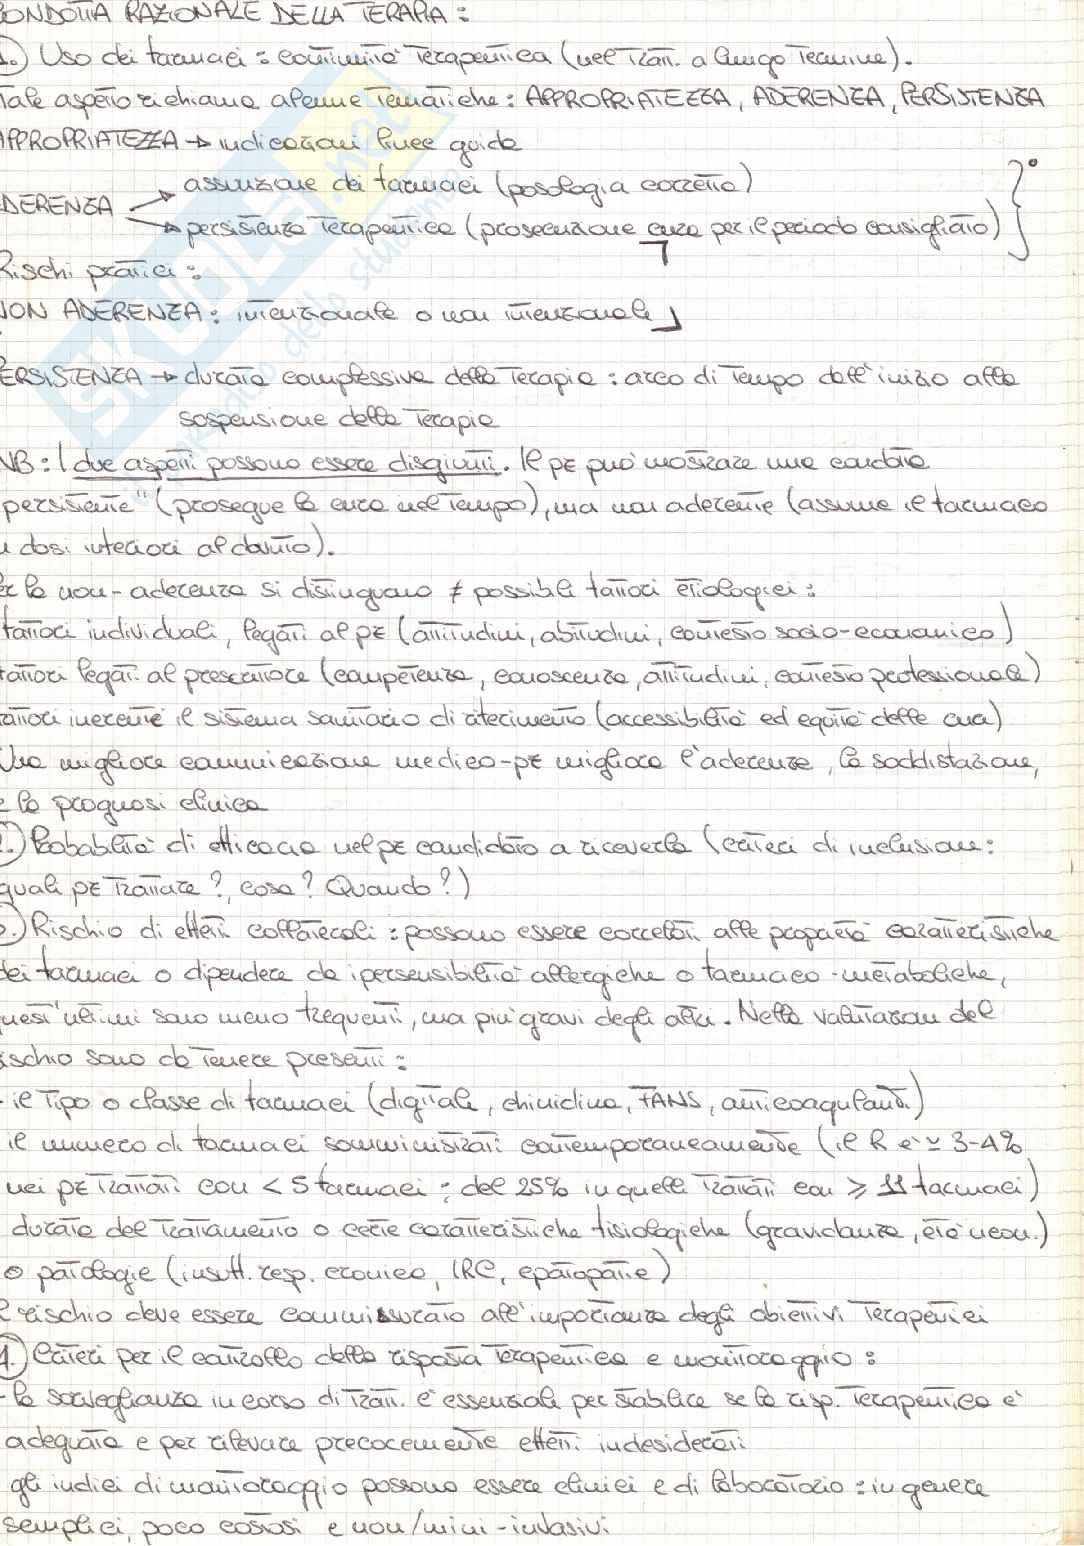 CONDOTTA RAZIONALE DELLA TERAPIA :
1.) Uso dei farmaci : continuità terapeutica (nel tratt. a lungo termine).
Tale aspetto richiama alcune tematiche : APPROPRIATEZZA, ADERENZA, PERSISTENZA
APPROPRIATEZZA → indicazioni linee guida
ADERENZA → assunzione dei farmaci (posologia corretta)
→ persistenza terapeutica (prosecuzione cura per il periodo consigliato)
Rischi pratici :
NON ADERENZA : intenzionale o non intenzionale
PERSISTENZA → durata complessiva della terapia : arco di tempo dall'inizio alla
sospensione della terapia
NB : I due aspetti possono essere disgiunti. Il pz può mostrare una condotta
"persistente" (prosegue la cura nel tempo), ma non aderente (assume il farmaco
a dosi inferiori al dovuto).
Per la non-aderenza si distinguono ≠ possibili fattori etiologici :
fattori individuali, legati al pz (attitudini, abitudini, contesto socio-economico)
fattori legati al prescrittore (competenza, conoscenza, attitudini, contesto professionale)
fattori inerenti il sistema sanitario di riferimento (accessibilità ed equità delle cure)
Una migliore comunicazione medico-pz migliora l'aderenza, la soddisfazione,
e la prognosi clinica
2.) Probabilità di efficacia nel pz candidato a riceverla (criteri di inclusione :
quali pz trattare ?, cosa ? Quando ?)
3.) Rischio di effetti collaterali : possono essere correlati alle proprietà caratteristiche
dei farmaci o dipendere da ipersensibilità allergiche o farmaco-metaboliche,
quest'ultimi sono meno frequenti, ma più gravi degli altri. Nella valutazion del
rischio sono da tenere presenti :
- il tipo o classe di farmaci (digitale, chinidina, FANS, anticoagulanti)
il numero di farmaci somministrati contemporaneamente (il R è ≃ 3-4%
nei pz trattati con < 5 farmaci ; del 25% in quelli trattati con ⩾ 11 farmaci)
durata del trattamento o certe caratteristiche fisiologiche (gravidanza, età neon.)
o patologie (insuff. resp. cronica, IRC, epatopatie)
Il rischio deve essere commisurato all'importanza degli obiettivi terapeutici
4.) Criteri per il controllo della risposta terapeutica e monitoraggio :
- la sorveglianza in corso di tratt. è essenziale per stabilire se la risp. terapeutica è
adeguata e per rilevare precocemente effetti indesiderati
gli indici di monitoraggio possono essere clinici e di laboratorio : in genere
semplici, poco costosi e non/mini-invasivi
SKUOLA.net